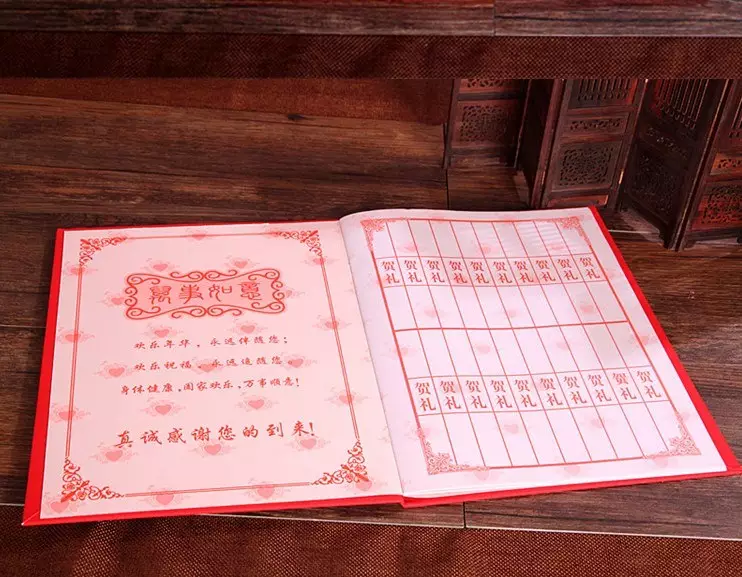 萬事如意
欢乐年华，永远伴随您；
欢乐祝福，永远追随您。
身体健康，阖家欢乐，万事顺意！
真诚感谢您的到来！
贺礼 贺礼 贺礼 贺礼 贺礼 贺礼 贺礼 贺礼 贺礼 贺礼
贺礼 贺礼 贺礼 贺礼 贺礼 贺礼 贺礼 贺礼 贺礼 贺礼